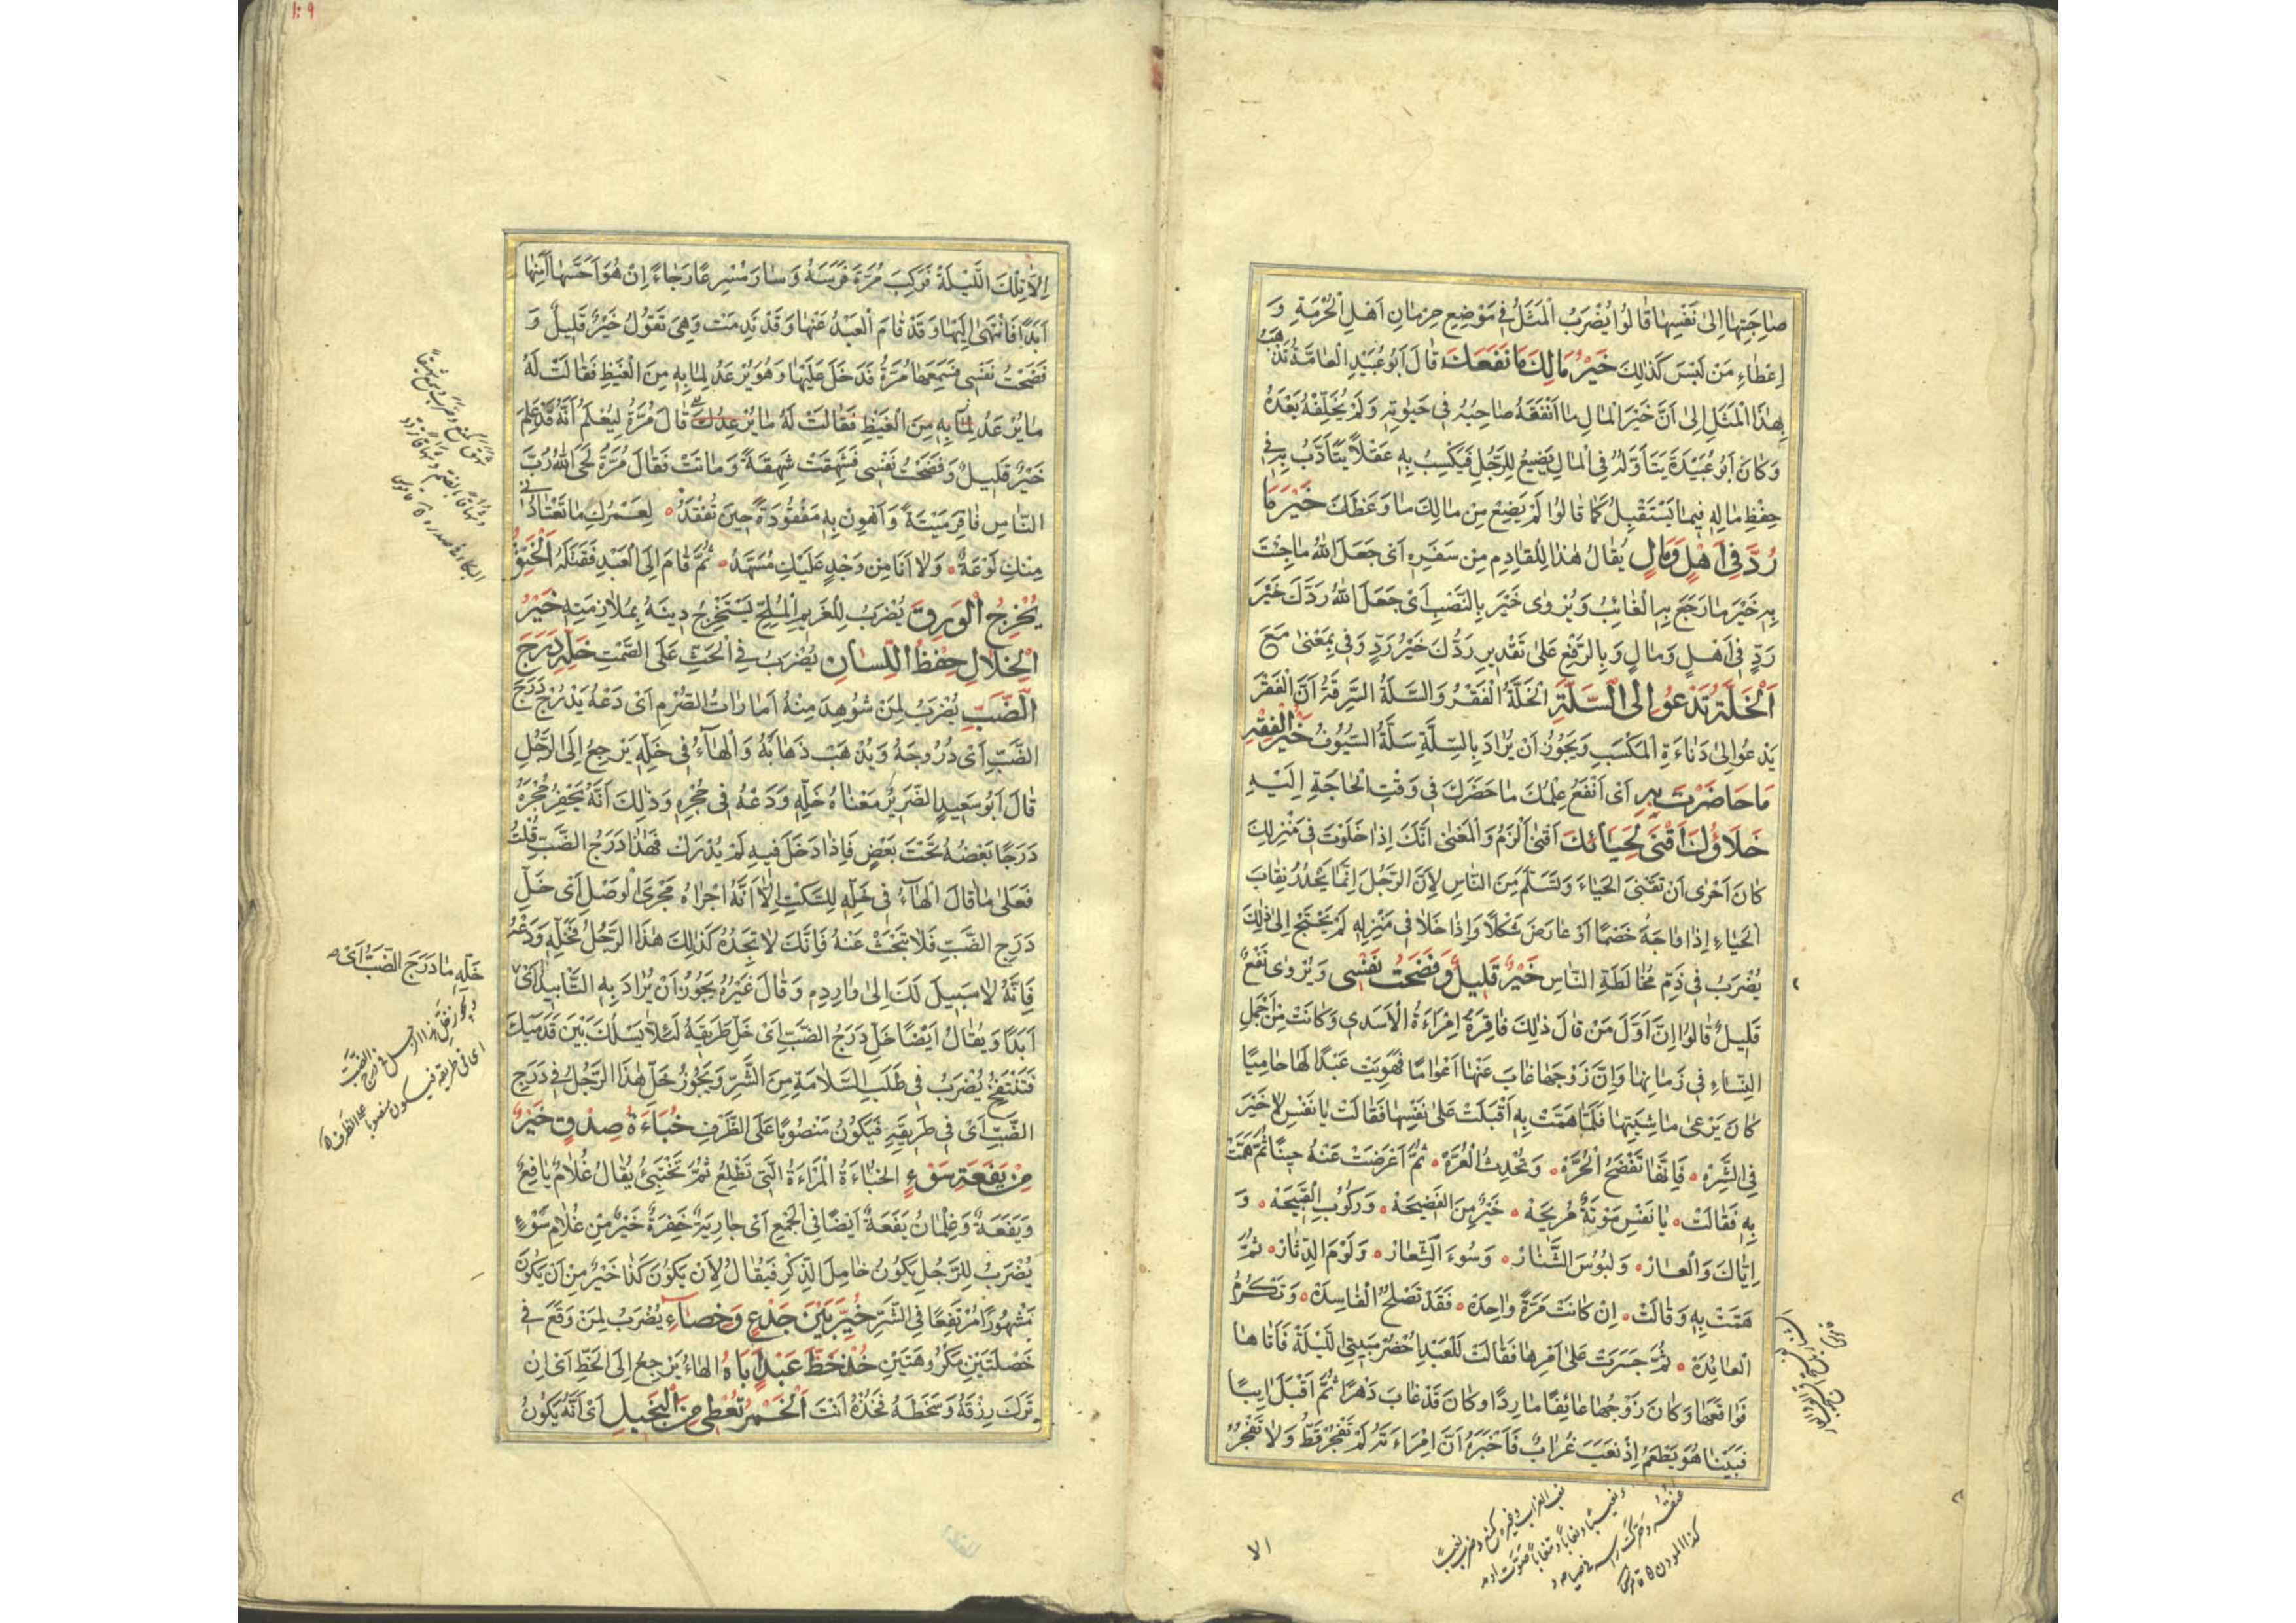 صَاحِبَتِهَا اِلىٰ نَفْسِهَا قَالُوا يُضْرَبُ الْمَثَلُ فِى مَوْضِعِ حِرْمَانِ اَهْلِ الْحُرْمَةِ وَ
اِعْطَاءِ مَن لَيْسَ كَذٰلِكَ خَيْرُ مَالِكَ مَا نَفَعَكَ قَالَ اَبُو عُبَيْدٍ الْعَامَّةُ تَذْهَبُ
بِهٰذَا الْمَثَلِ اِلىٰ اَنَّ خَيْرَ الْمَالِ مَا اَنْفَقَهُ صَاحِبُهُ فِى حَيٰوتِهِ وَلَمْ يُخَلِّفْهُ بَعْدَهُ
وَكَانَ اَبُو عُبَيْدَةَ يَتَأَوَّلُهُ فِى الْمَالِ يَضِيعُ لِلرَّجُلِ فَيَكْسِبُ بِهِ عَقْلًا يَتَأَدَّبُ بِهِ فِى
حِفْظِ مَالِهِ فِيمَا يَسْتَقْبِلُ كَمَا قَالُوا لَمْ يَضِعْ مِن مَالِكَ مَا وَعَظَكَ خَيْرَ مَا
رُدَّ فِى اَهْلٍ وَمَالٍ يُقَالُ هٰذَا لِلْقَادِمِ مِن سَفَرِهِ اَىْ جَعَلَ اللهُ مَا جِئْتَ
بِهِ خَيْرَ مَا رَجَعَ بِهِ الْغَائِبُ وَيُرْوٰى خَيْرَ بِالنَّصْبِ اَىْ جَعَلَ اللهُ رَدَّكَ خَيْرَ
رَدٍّ فِى اَهْلٍ وَمَالٍ وَبِالرَّفْعِ عَلىٰ تَقْدِيرِ رَدُّكَ خَيْرُ رَدٍّ وَفِى بِمَعْنىٰ مَعَ
اَلْخَلَّةُ تَدْعُو اِلَى السَّلَّةِ اَلْخَلَّةُ الْفَقْرُ وَالسَّلَّةُ السَّرِقَةُ اَنَّ الْفَقْرَ
يَدْعُو اِلىٰ دَنَاءَةِ الْمَكْسَبِ وَيَجُوزُ اَنْ يُرَادَ بِالسَّلَّةِ سَلَّةُ السُّيُوفِ خَيْرُ الْفِقْهِ
مَا حَاضَرْتَ بِهِ اَىْ اَنْفَعُ عِلْمِكَ مَا حَضَرَكَ فِى وَقْتِ الْحَاجَةِ اِلَيْهِ
خَلَاؤُكَ اَقْنىٰ لِحَيَائِكَ اَقْنىٰ اَلْزَمُ وَالْمَعْنىٰ اَنَّكَ اِذَا خَلَوْتَ فِى مَنْزِلِكَ
كَانَ اَحْرٰى اَنْ تَقْنىَ الْحَيَاءَ وَتَسْلَمَ مِنَ النَّاسِ لِاَنَّ الرَّجُلَ اِنَّمَا يَحْذَرُ نِقَابَ
الْحَيَاءِ اِذَا وَاجَهَ خَصْمًا اَوْ عَارَضَ شَكْلًا وَاِذَا خَلَا فِى مَنْزِلِهِ لَمْ يَحْتَجْ اِلىٰ ذٰلِكَ
يُضْرَبُ فِى ذَمِّ مُخَالَطَةِ النَّاسِ خَيْرٌ قَلِيلٌ وَفَضَحْتُ نَفْسِى وَيُرْوٰى نَفْعٌ
قَلِيلٌ قَالُوا اِنَّ اَوَّلَ مَنْ قَالَ ذٰلِكَ فَاقِرَةُ اِمْرَاَةُ الْاَسَدِى وَكَانَتْ مِنْ اَجْمَلِ
النِّسَاءِ فِى زَمَانِهَا وَاِنَّ زَوْجَهَا غَابَ عَنْهَا اَعْوَامًا فَهَوِيَتْ عَبْدًا لَهَا حَامِيًا
كَانَ يَرْعىٰ مَاشِيَتِهَا فَلَمَّا هَمَّتْ بِهِ اَقْبَلَتْ عَلىٰ نَفْسِهَا فَقَالَتْ يَا نَفْسِ لَا خَيْرَ
فِى الشَّرَهِ فَاِنَّهَا تَفْضَحُ الْحُرَّةَ وَتُحْدِثُ الْعُرَّةَ ثُمَّ اَعْرَضَتْ عَنْهُ حِينًا ثُمَّ هَمَّتْ
بِهِ فَقَالَتْ يَا نَفْسِ مَوْتَةٌ مُرِيحَةٌ خَيْرٌ مِنَ الْفَضِيحَةِ وَرَكُوبِ الْقَبِيحَةِ وَ
اِيَّاكَ وَالْعَارَ وَلَبُوسَ الشَّنَارِ وَسُوءَ الشِّعَارِ وَلَوْمَ الدِّثَارِ ثُمَّ
هَمَّتْ بِهِ وَقَالَتْ اِنْ كَانَتْ مَرَّةً وَاحِدَةً فَقَدْ تَصْلُحُ الْفَاسِدَةُ وَتَكْرُمُ
الْعَائِدَةُ ثُمَّ جَسَرَتْ عَلىٰ اَمْرِهَا فَقَالَتْ لِلْعَبْدِ اُحْضُرْ مَبِيتِى اللَّيْلَةَ فَاَتَاهَا
فَوَاقَعَهَا وَكَانَ زَوْجُهَا عَائِفًا مَارِدًا وَكَانَ قَدْ غَابَ دَهْرًا ثُمَّ اَقْبَلَ اٰيِبًا
فَبَيْنَا هُوَ يَطْعَمُ اِذْ نَعَبَ غُرَابٌ فَاَخْبَرَهُ اَنَّ امْرَاَتَهُ لَمْ تَفْجُرْ قَطُّ وَلَا تَفْجُرُ
اِلَّا تِلْكَ اللَّيْلَةَ فَرَكِبَ مُرَّةُ فَرَسَهُ وَسَارَ مُسْرِعًا رَجَاءً اِنْ هُوَ اَحَسَّهَا اَمِنَهَا
اَبَدًا فَانْتَهىٰ اِلَيْهَا وَقَدْ قَامَ الْعَبْدُ عَنْهَا وَقَدْ نَدِمَتْ وَهِىَ تَقُولُ خَيْرٌ قَلِيلٌ وَ
فَضَحْتُ نَفْسِى فَسَمِعَهَا مُرَّةُ فَدَخَلَ عَلَيْهَا وَهُوَ يُرْعَدُ لِمَا بِهِ مِنَ الْغَيْظِ فَقَالَتْ لَهُ
مَا يُرْعَدُ لِمَا بِهِ مِنَ الْغَيْظِ فَقَالَتْ لَهُ مَا يُرْعِدُكَ قَالَ مُرَّةُ لِيُعْلَمَ اَنَّهُ قَدْ عَلِمَ
خَيْرٌ قَلِيلٌ وَفَضَحْتُ نَفْسِى فَشَهِقَتْ شَهْقَةً وَمَاتَتْ فَقَالَ مُرَّةُ لَحَى اللهُ رَبُّ
النَّاسِ فَاقِرَ مَيْتَةً وَاَهْوِنْ بِهِ مَفْقُودَةً حِينَ تُفْقَدُ لَعَمْرُكِ مَا تَعْتَادُنِى
مِنْكِ لَوْعَةٌ وَلَا اَنَا مِن وَجْدٍ عَلَيْكِ مُسَهَّدُ ثُمَّ قَامَ اِلَى الْعَبْدِ فَقَتَلَهُ اَلْخَنِقُ
يُخْرِجُ الْوَرِقَ يُضْرَبُ لِلْغَرِيمِ الْمُلِحِّ يَسْتَخْرِجُ دِينَهُ بِمُلَازَمَتِهِ خَيْرُ
الْخِلَالِ حِفْظُ اللِّسَانِ يُضْرَبُ فِى الْحَثِّ عَلَى الصَّمْتِ خَلِّهِ دَرَجَ
الضَّبِّ يُضْرَبُ لِمَنْ شُوهِدَ مِنْهُ اَمَارَاتُ الصَّرْمِ اَىْ دَعْهُ يَدْرُجْ دَرَجَ
الضَّبِّ اَىْ دُرُوجَهُ وَيَذْهَبْ ذَهَابَهُ وَالْهَاءُ فِى خَلِّهِ يَرْجِعُ اِلَى الرَّجُلِ
قَالَ اَبُو سَعِيدٍ الضَّرِيرُ مَعْنَاهُ خَلِّهِ وَدَعْهُ فِى جُحْرِهِ وَذٰلِكَ اَنَّهُ يَحْفِرُ جُحْرَهُ
دَرَجًا بَعْضُهُ تَحْتَ بَعْضٍ فَاِذَا دَخَلَ فِيهِ لَمْ يُدْرَكْ فَهٰذَا دَرَجُ الضَّبِّ قُلْتُ
فَعَلىٰ مَا قَالَ الْهَاءُ فِى خَلِّهِ لِلسَّكْتِ اِلَّا اَنَّهُ اَجْرَاهُ مَجْرَى الْوَصْلِ اَىْ خَلِّ
دَرَجَ الضَّبِّ فَلَا تَبْحَثْ عَنْهُ فَاِنَّكَ لَا تَجِدُهُ كَذٰلِكَ هٰذَا الرَّجُلُ فَخَلِّهِ وَدَعْهُ
فَاِنَّهُ لَا سَبِيلَ لَكَ اِلىٰ وَارِدِهِ وَقَالَ غَيْرُهُ يَجُوزُ اَنْ يُرَادَ بِهِ التَّأْبِيدُ اَىْ
اَبَدًا وَيُقَالُ اَيْضًا خَلِّ دَرَجَ الضَّبِّ اَىْ خَلِّ طَرِيقَهُ لَئَلَّا يَسْلُكَ بَيْنَ قَدَمَيْكَ
فَتَنْتَفِخُ يُضْرَبُ فِى طَلَبِ السَّلَامَةِ مِنَ الشَّرِّ وَيَجُوزُ خَلِّ هٰذَا الرَّجُلَ فِى دَرَجِ
الضَّبِّ اَىْ فِى طَرِيقِهِ فَيَكُونُ مَنْصُوبًا عَلَى الظَّرْفِ خُبَاءَةُ صِدْقٍ خَيْرٌ
مِنْ يَفَعَةِ سَوْءٍ الخُبَاءَةُ الْمَرْاَةُ الَّتِى تَطْلَعُ ثُمَّ تَخْتَبِئُ يُقَالُ غُلَامٌ يَافِعٌ
وَيَفَعَةٌ وَغِلْمَانٌ يَفَعَةٌ اَيْضًا فِى الْجَمْعِ اَىْ جَارِيَةٌ خَفِرَةٌ خَيْرٌ مِنْ غُلَامِ سَوْءٍ
يُضْرَبُ لِلرَّجُلِ يَكُونُ خَامِلَ الذِّكْرِ فَيُقَالُ لِاَنْ يَكُونَ كَذَا خَيْرٌ مِنْ اَنْ يَكُونَ
مَشْهُورًا مُرْتَفِعًا فِى الشَّرِّ خُيِّرَ بَيْنَ جَدْعٍ وَخِصَاءٍ يُضْرَبُ لِمَنْ وَقَعَ فِى
خَصْلَتَيْنِ مَكْرُوهَتَيْنِ خُذْ حَظَّ عَبْدٍ اَبَاهُ الهَاءُ يَرْجِعُ اِلَى الْحَظِّ اَىْ اِنْ
تَرَكَ رِزْقَهُ وَسَخِطَهُ فَخُذْهُ اَنْتَ اَلْخَمْرُ تُعْطِى مِنَ الْبَخِيلِ اَىْ اَنَّهُ يَكُونُ
خَلِّهِ مَا دَرَجَ الضَّبُّ اَىْ